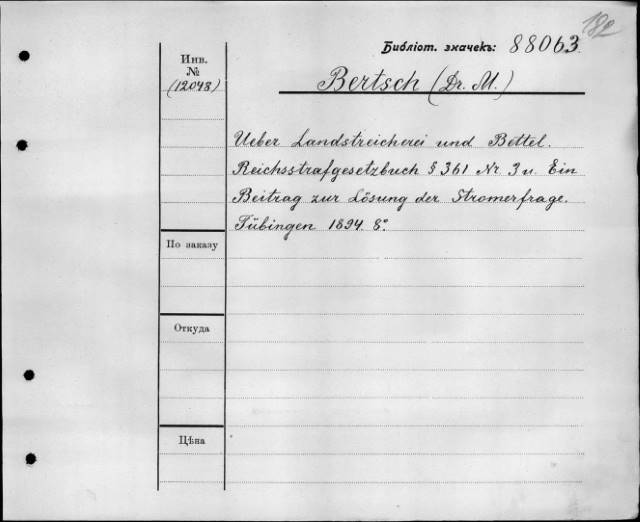 182
Библіот. значекъ: 88063.
Инв.
№
(12048)
Bertsch (Dr. M.)
Ueber Landstreicherei und Bettel.
Reichsstrafgesetzbuch § 361 Nr. 3 u. Ein
Beitrag zur Lösung der Stromerfrage.
Tübingen 1894. 8°.
По заказу
Откуда
Цѣна